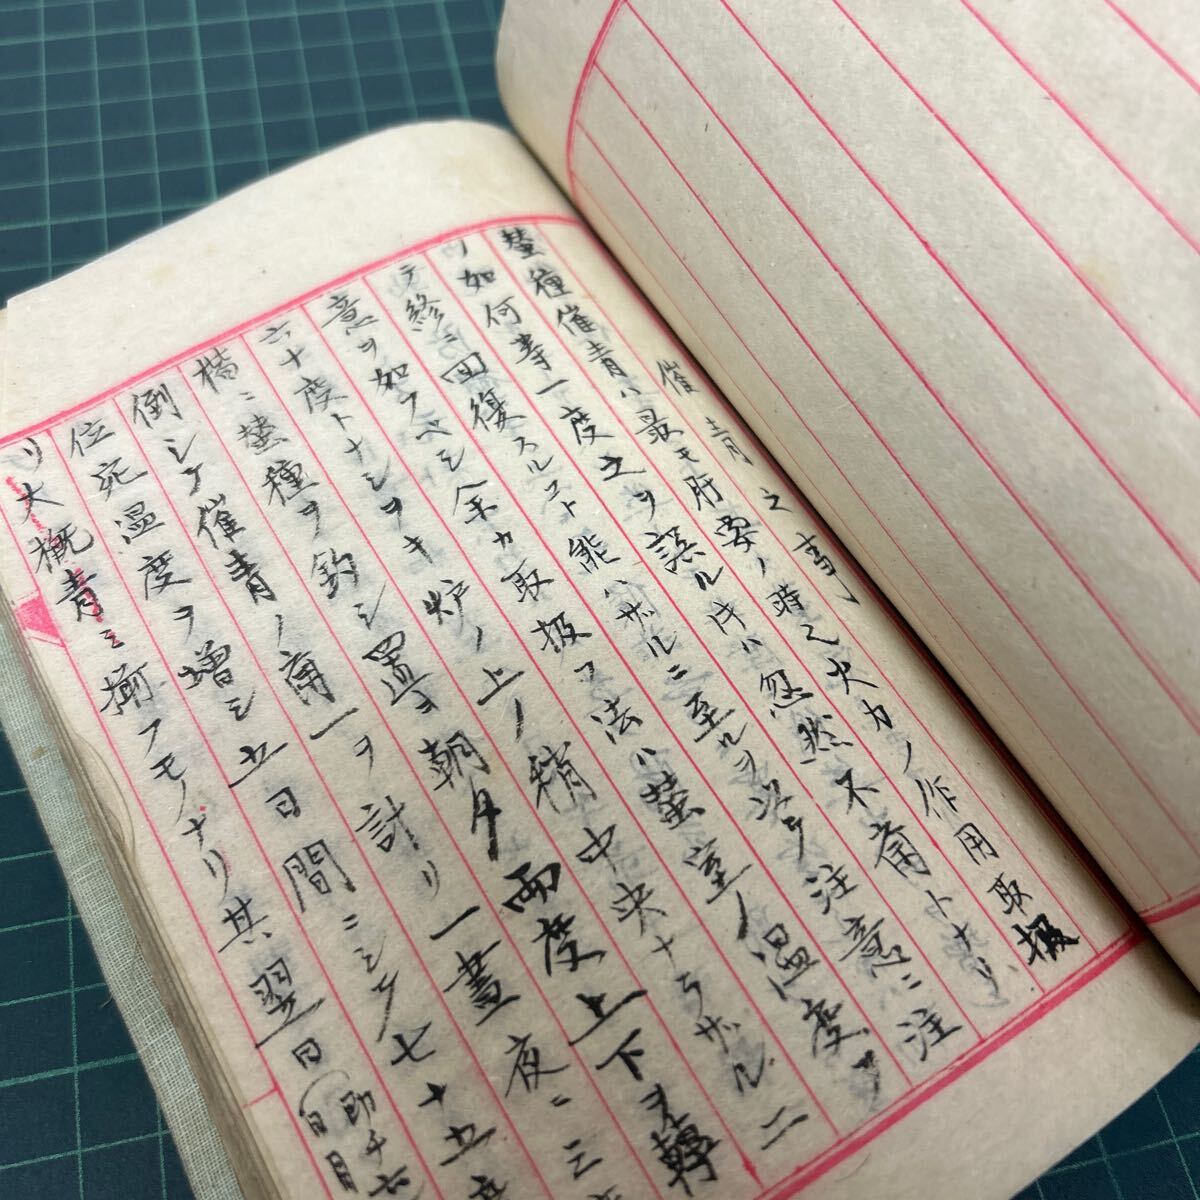 催青之事
蚕種催青ハ最モ肝要ノ時之火力ノ作用取扱
ノ如何等一度之ヲ誤ル时ハ忽然不斉トナリ
テ終ニ回復スルヿ能ハザルニ至ルヲ以テ注意ニ注
意ヲ加フベシ余カ取扱フ法ハ蚕室ノ温度ヲ
六十度トナシヲキ炉ノ上ノ稍中央ナラザル
楷ニ蚕種ヲ釣シ置キ朝夕両度上下ヲ轉
倒シテ催青ノ斉一ヲ計リ一晝夜ニ三
位宛温度ヲ増シ五日間ニシテ七十五度
リ大概青ミ揃フモノナリ其翌日